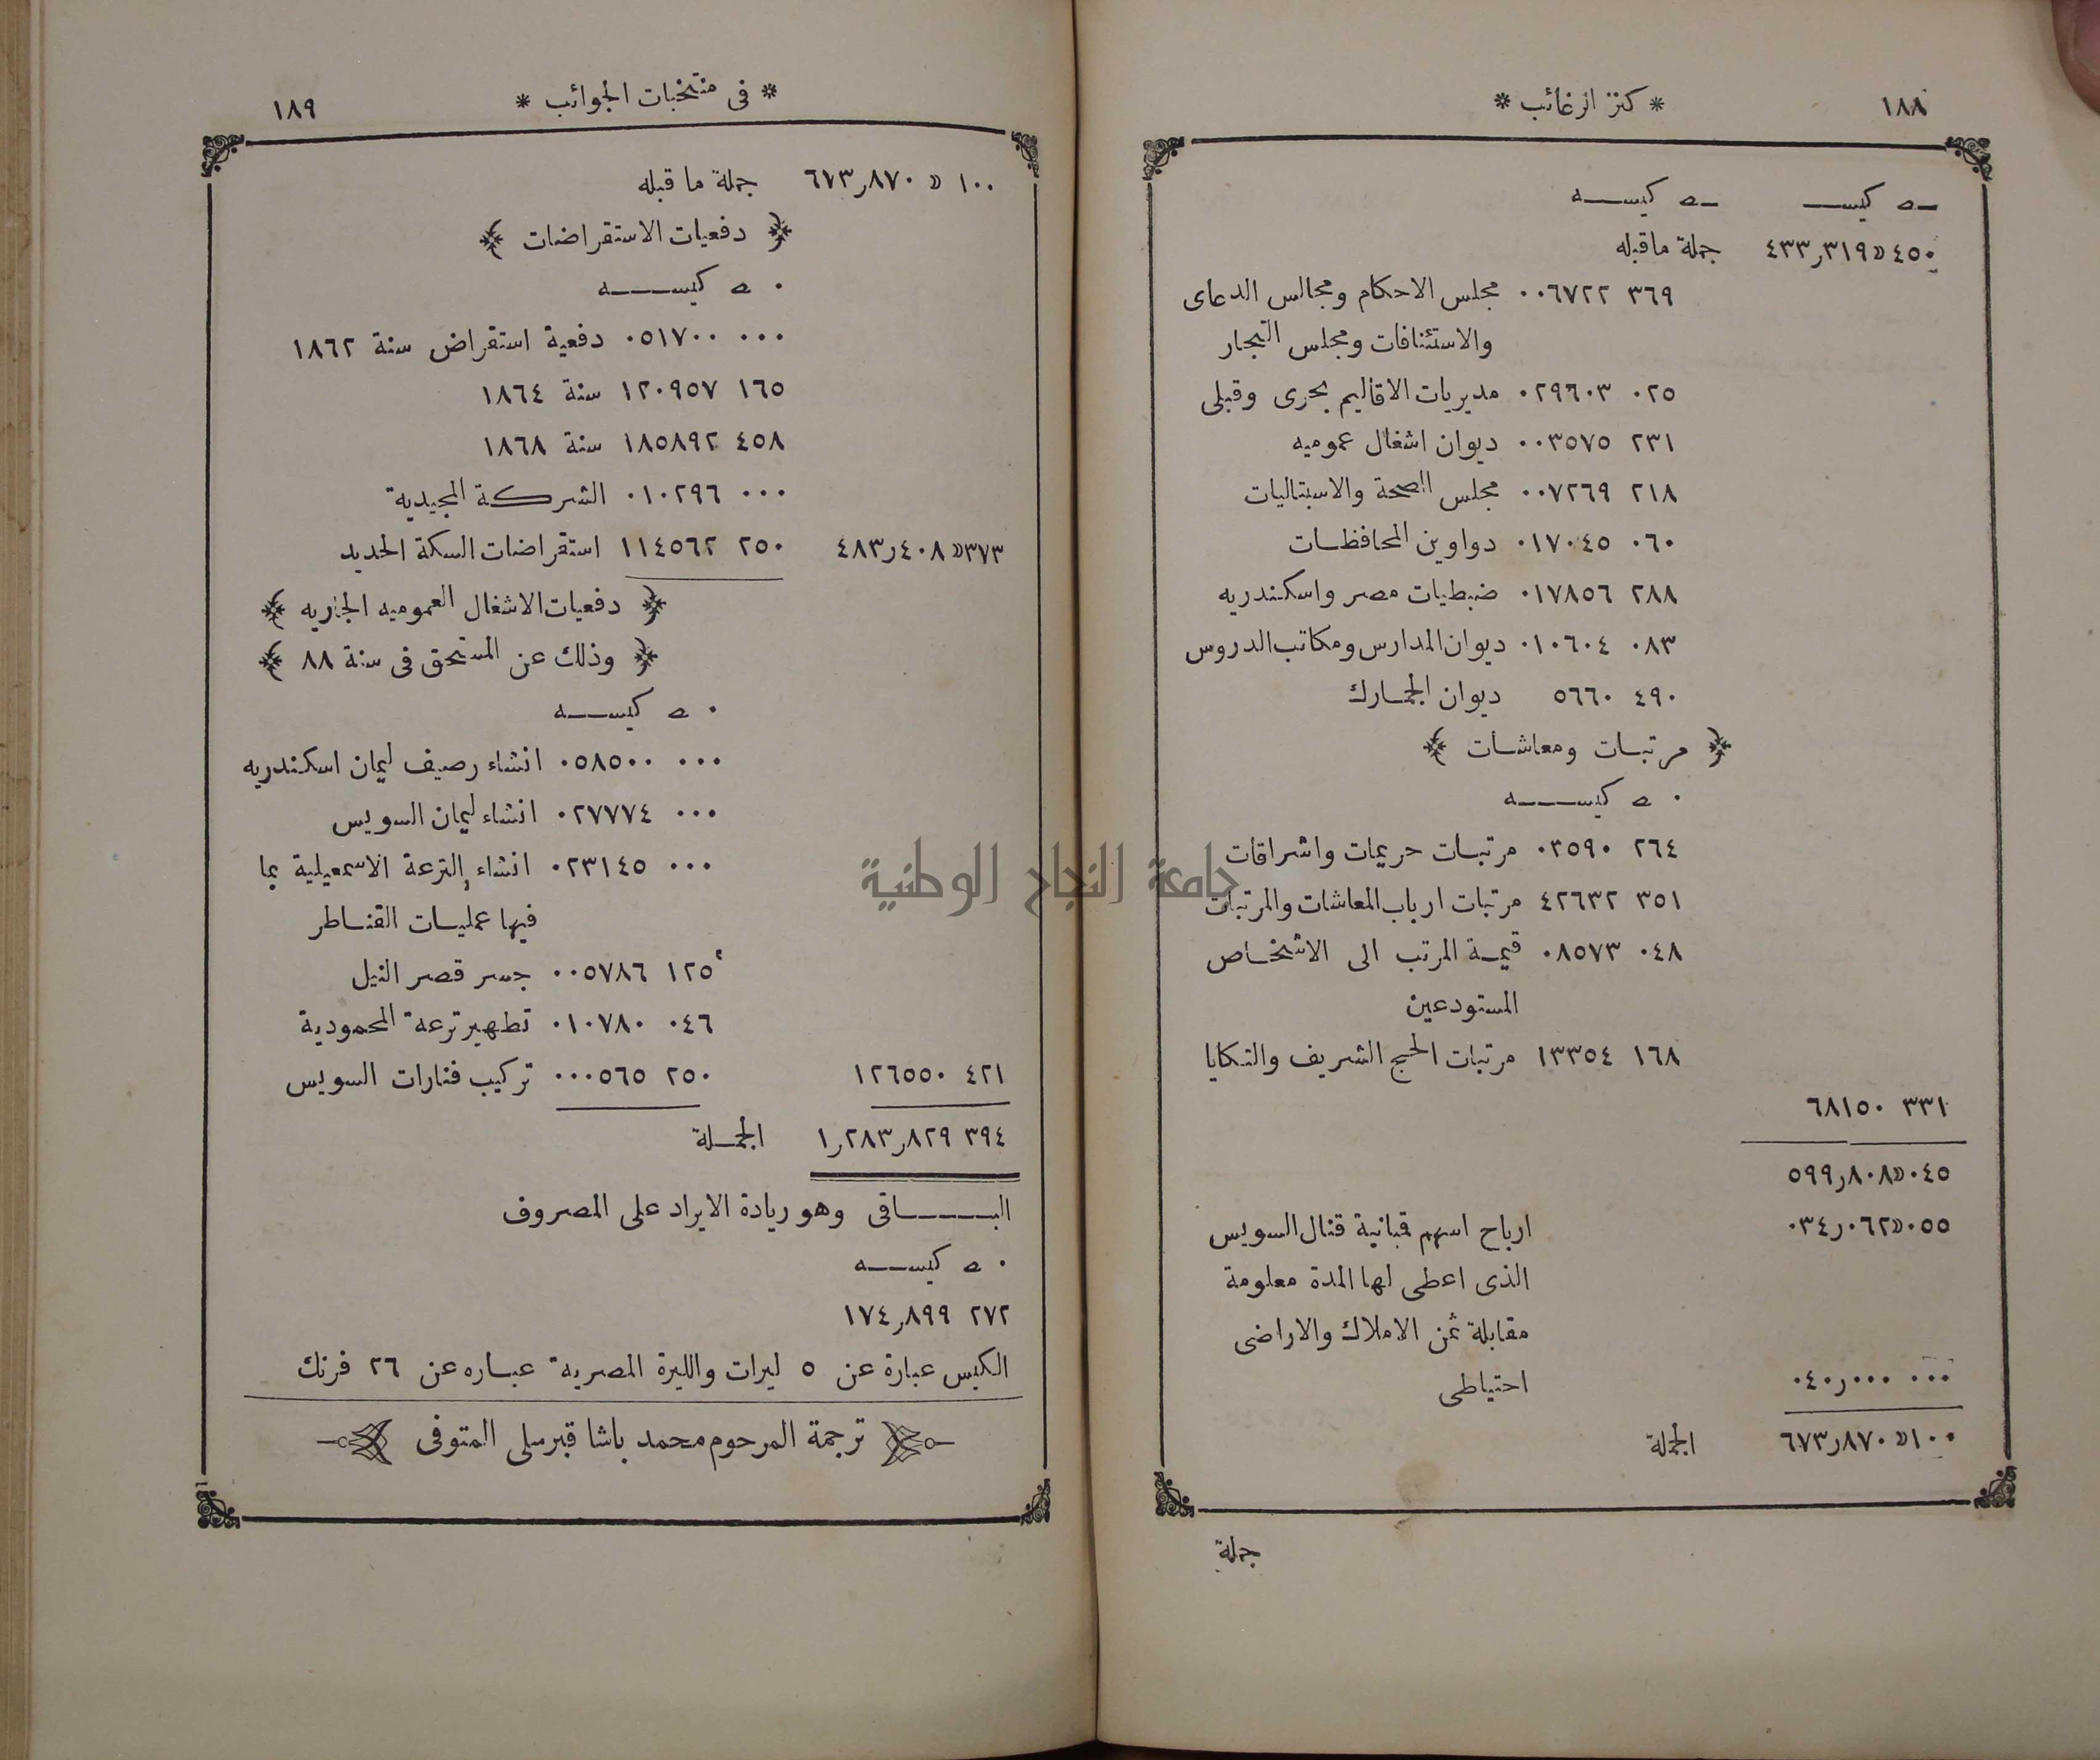 ١٨٨
* كنز الرغائب *
ـه كيسـه ـه كيسـه
٤٥٠ » ٣١٩ر٤٣٣ جملة ماقبله
٣٦٩ ٠٠٦٧٢٢ مجلس الاحكام ومجالس الدعاى
والاستئنافات ومجلس التجار
٠٢٥ ٠٢٩٦٠٣ مديريات الاقاليم بحرى وقبلى
٢٣١ ٠٠٣٥٧٥ ديوان اشغال عموميه
٢١٨ ٠٠٧٢٦٩ مجلس الصحة والاسبتاليات
٠٦٠ ٠١٧٠٤٥ دواوين المحافظات
٢٨٨ ٠١٧٨٥٦ ضبطيات مصر واسكندريه
٠٨٣ ٠١٠٦٠٤ ديوان المدارس ومكاتب الدروس
٤٩٠ ٥٦٦٠ ديوان الجمارك
﴿ مرتبات ومعاشات ﴾
٠ ـه كيسـه
٢٦٤ ٠٣٥٩٠ مرتبات حريمات واشراقات
٣٥١ ٤٢٦٣٢ مرتبات ارباب المعاشات والمرتبات
٠٤٨ ٠٨٥٧٣ قيمة المرتب الى الاشخاص
المستودعين
١٦٨ ١٣٣٥٤ مرتبات الحج الشريف والتكايا
٣٣١ ٦٨١٥٠
٠٤٥ » ٨٠٨ر٥٩٩
٠٥٥ » ٠٦٢ر٠٣٤ ارباح اسهم قبانية قنال السويس
الذى اعطى لها المدة معلومة
مقابلة ثمن الاملاك والاراضى
٠٠٠ ٠٠٠ر٠٤٠ احتياطى
١٠٠ » ٨٧٠ر٦٧٣ الجملة
جملة
* فى منتخبات الجوائب *
١٨٩
١٠٠ » ٨٧٠ر٦٧٣ جملة ما قبله
﴿ دفعيات الاستقراضات ﴾
٠ ـه كيسـه
٠٠٠ ٠٥١٧٠٠ دفعية استقراض سنة ١٨٦٢
١٦٥ ١٢٠٩٥٧ سنة ١٨٦٤
٤٥٨ ١٨٥٨٩٢ سنة ١٨٦٨
٠٠٠ ٠١٠٢٩٦ الشركة المجيدية
٣٧٣ » ٤٠٨ر٤٨٣ ٢٥٠ ١١٤٥٦٢ استقراضات السكة الحديد
﴿ دفعيات الاشغال العموميه الجاريه ﴾
﴿ وذلك عن المستحق فى سنة ٨٨ ﴾
٠ ـه كيسـه
٠٠٠ ٠٥٨٥٠٠ انشاء رصيف ليمان اسكندريه
٠٠٠ ٠٢٧٧٧٤ انشاء ليمان السويس
٠٠٠ ٠٢٣١٤٥ انشاء الترعة الاسمعيلية بما
فيها عمليات القناطر
١٢٥ ٠٠٥٧٨٦ جسر قصر النيل
٠٤٦ ٠١٠٧٨٠ تطهير ترعة المحمودية
٤٢١ ١٢٦٥٥٠ ٢٥٠ ٠٠٠٥٦٥ تركيب فنارات السويس
٣٩٤ ٨٢٩ر٢٨٣ر١ الجملة
البـاقى وهو ريادة الايراد على المصروف
٠ ـه كيسـه
٢٧٢ ٨٩٩ر١٧٤
الكيس عبارة عن ٥ ليرات والليرة المصرية عباره عن ٢٦ فرنك
ترجمة المرحوم محمد باشا قبرسلى المتوفى
جامعة النجاح الوطنية